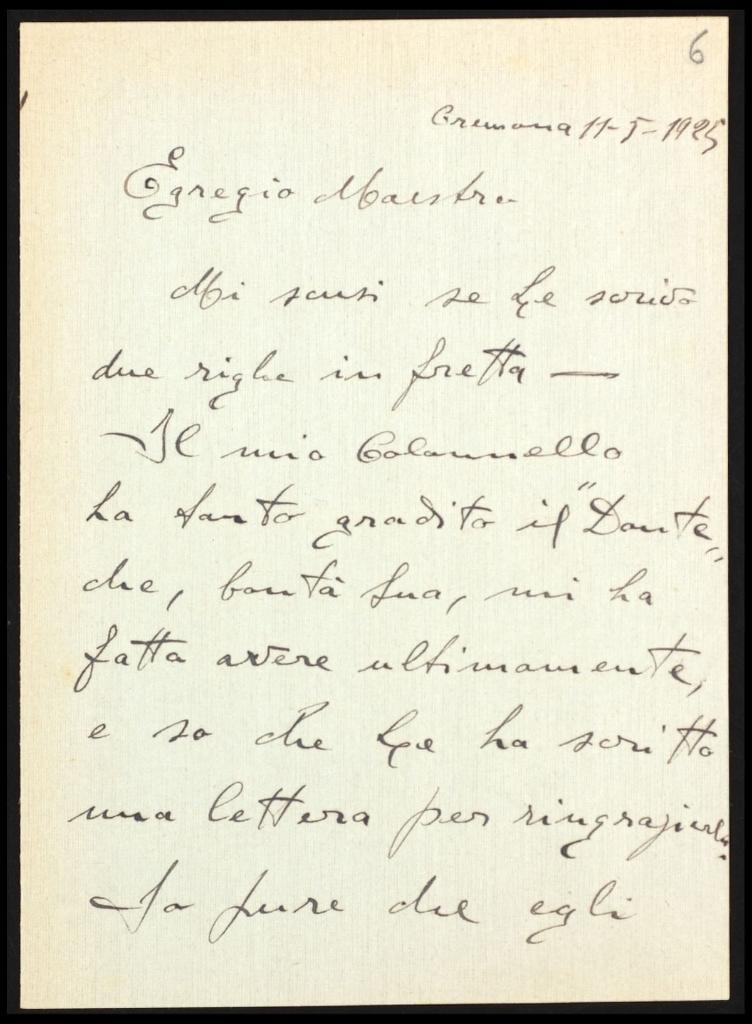 6
Cremona 11-5-1925
Egregio Maestro
Mi scusi se Le scrivo
due righe in fretta —
Il mio Colonnello
ha tanto gradito il "Dante"
che, bontà Sua, mi ha
fatto avere ultimamente,
e so che Le ha scritto
una lettera per ringraziarla.
So pure che egli